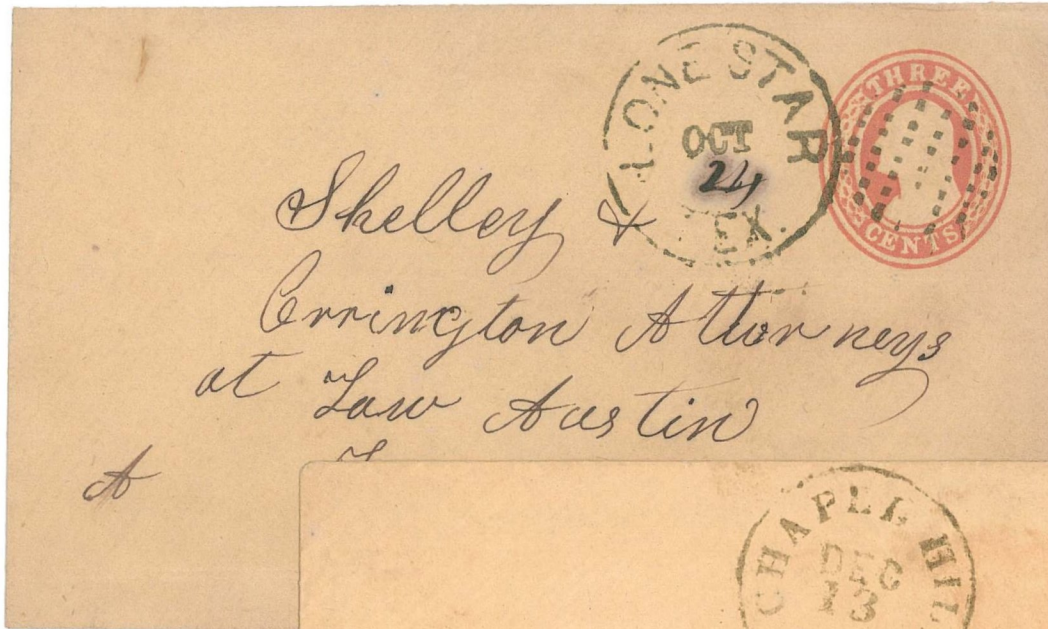 LONE STAR
OCT
24
TEX.
THREE
CENTS
Shelley &
Errington Attorneys
at Law Austin
A
CHAPEL HIL
DEC
13